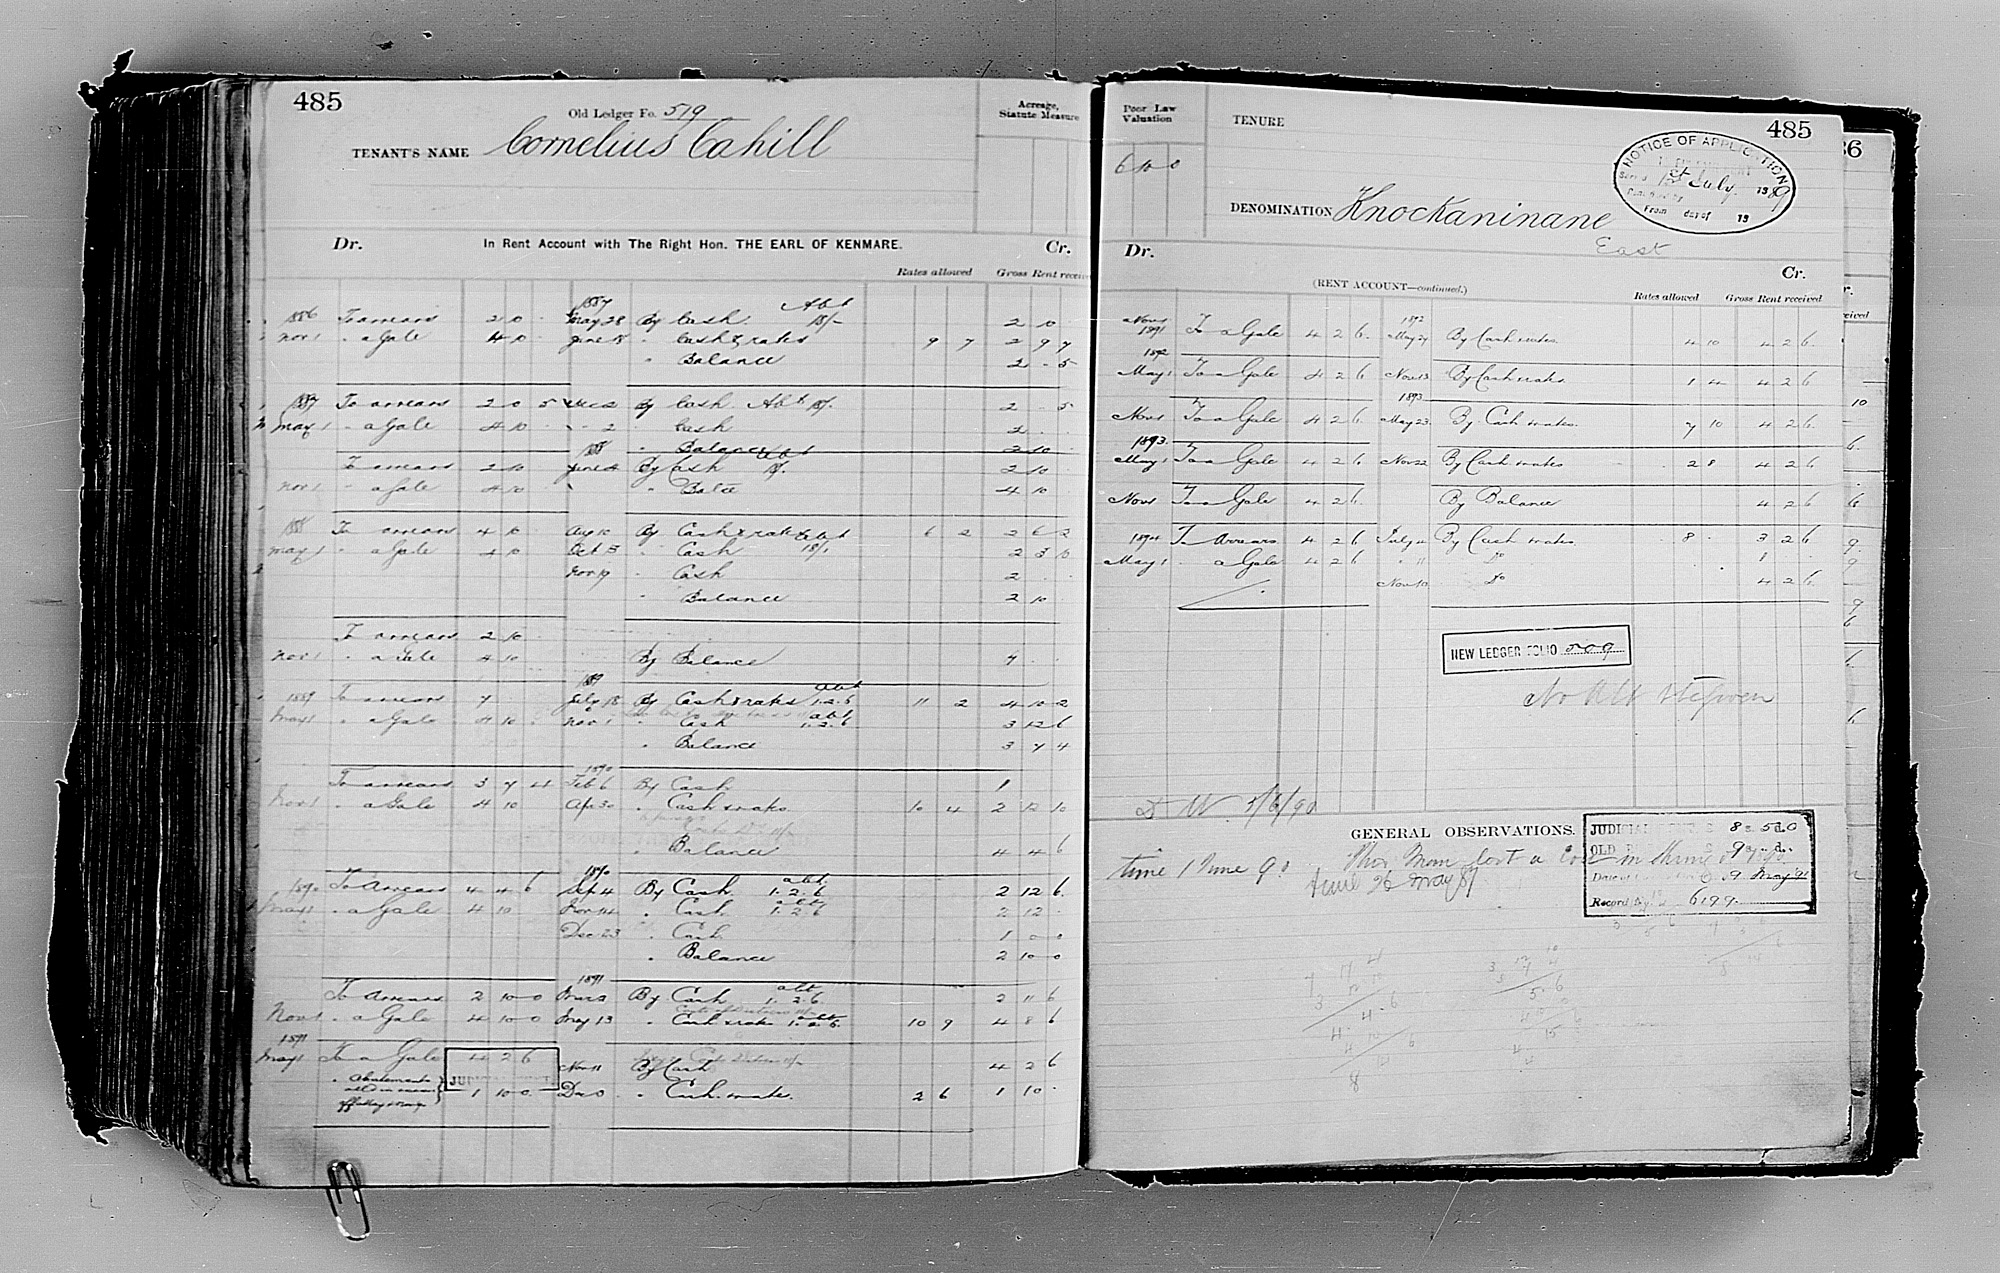 485
Old Ledger Fo. 519
TENANT'S NAME Cornelius Cahill
Acreage,
Statute Measure
Dr. In Rent Account with The Right Hon. THE EARL OF KENMARE. Cr.
Rates allowed Gross Rent received
1887 Abt
1886 To arrears 2 10 May 28 By Cash 18/- 2 10
Nov 1 " a Gale 4 10 June 18 " Cash & rates 9 7 2 9 7
" Balance 2 - 5
1887 To arrears 2 0 5 Dec 2 By Cash Abt 18/- 2 - 5
May 1 " a Gale 4 10 " 2 " Cash 2
1888 " Balance 2 10
To arrears 2 10 June 4 By Cash 2 10
Nov 1 " a Gale 4 10 " Balce 4 10
1888 To arrears 4 10 Aug 10 By Cash & rates Abt 6 2 2 6 2
May 1 " a Gale 4 10 Oct 5 " Cash 18/- 2 3 10
Nov 19 " Cash 2
" Balance 2 10
To arrears 2 10
Nov 1 " a Gale 4 10 By Balance 7
1889 abt
1889 To arrears 7 July 18 By Cash & rates 1.2.6 11 2 4 10 2
May 1 " a Gale 4 10 Nov 1 " Cash abt 1.2.6 3 12 6
" Balance 3 7 4
1890
To arrears 3 7 4 Feb 6 By Cash 1
Nov 1 " a Gale 4 10 Apr 30 " Cash & rates 10 4 2 12 10
" Balance 4 4 6
1890 abt
1890 To Arrears 4 4 6 Sep 4 By Cash 1.2.6 2 12 6
May 1 " a Gale 4 10 Nov 14 " Cash abt 1.2.6 2 12
Dec 23 " Cash 1 0 0
" Balance 2 10 0
1891 abt
To Arrears 2 10 0 By Cash 1.2.6 2 11 6
Nov 1 " a Gale 4 10 0 May 13 " Cash & rates 1.2.6 10 9 4 8 6
1891
May 1 To a Gale 4 2 6 Nov 11 By Cash 4 2 6
" Abatements
JUDICIAL RENT
1 10 0 Dec " Cash & rates 2 6 1 10
Poor Law
Valuation
6 10 0
TENURE
485
NOTICE OF APPLICATION
1st July
From day of 19
DENOMINATION Knockaninane
East
Dr. Cr.
(RENT ACCOUNT—continued.)
Rates allowed Gross Rent received
Nov 1 1891 To a Gale 4 2 6 1892 May 24 By Cash & rates 4 10 4 2 6
1892
May 1 To a Gale 4 2 6 Nov 13 By Cash & rates 1 4 4 2 6
1893
Nov 1 To a Gale 4 2 6 May 23 By Cash & rates 7 10 4 2 6
1893
May 1 To a Gale 4 2 6 Nov 22 By Cash & rates 2 8 4 2 6
Nov 1 To a Gale 4 2 6 By Balance 4 2 6
1894 To Arrears 4 2 6 July 11 By Cash & rates 8 3 2 6
May 1 " a Gale 4 2 6 " 11 Do 1
Nov 10 Do 4 2 6
NEW LEDGER FOLIO 509
5/6/90
GENERAL OBSERVATIONS.
JUDICIAL 8 5 0
OLD 9
May 91
Record 6199
time 1 June 90 This Man lost a Cow in
time 26 May 87